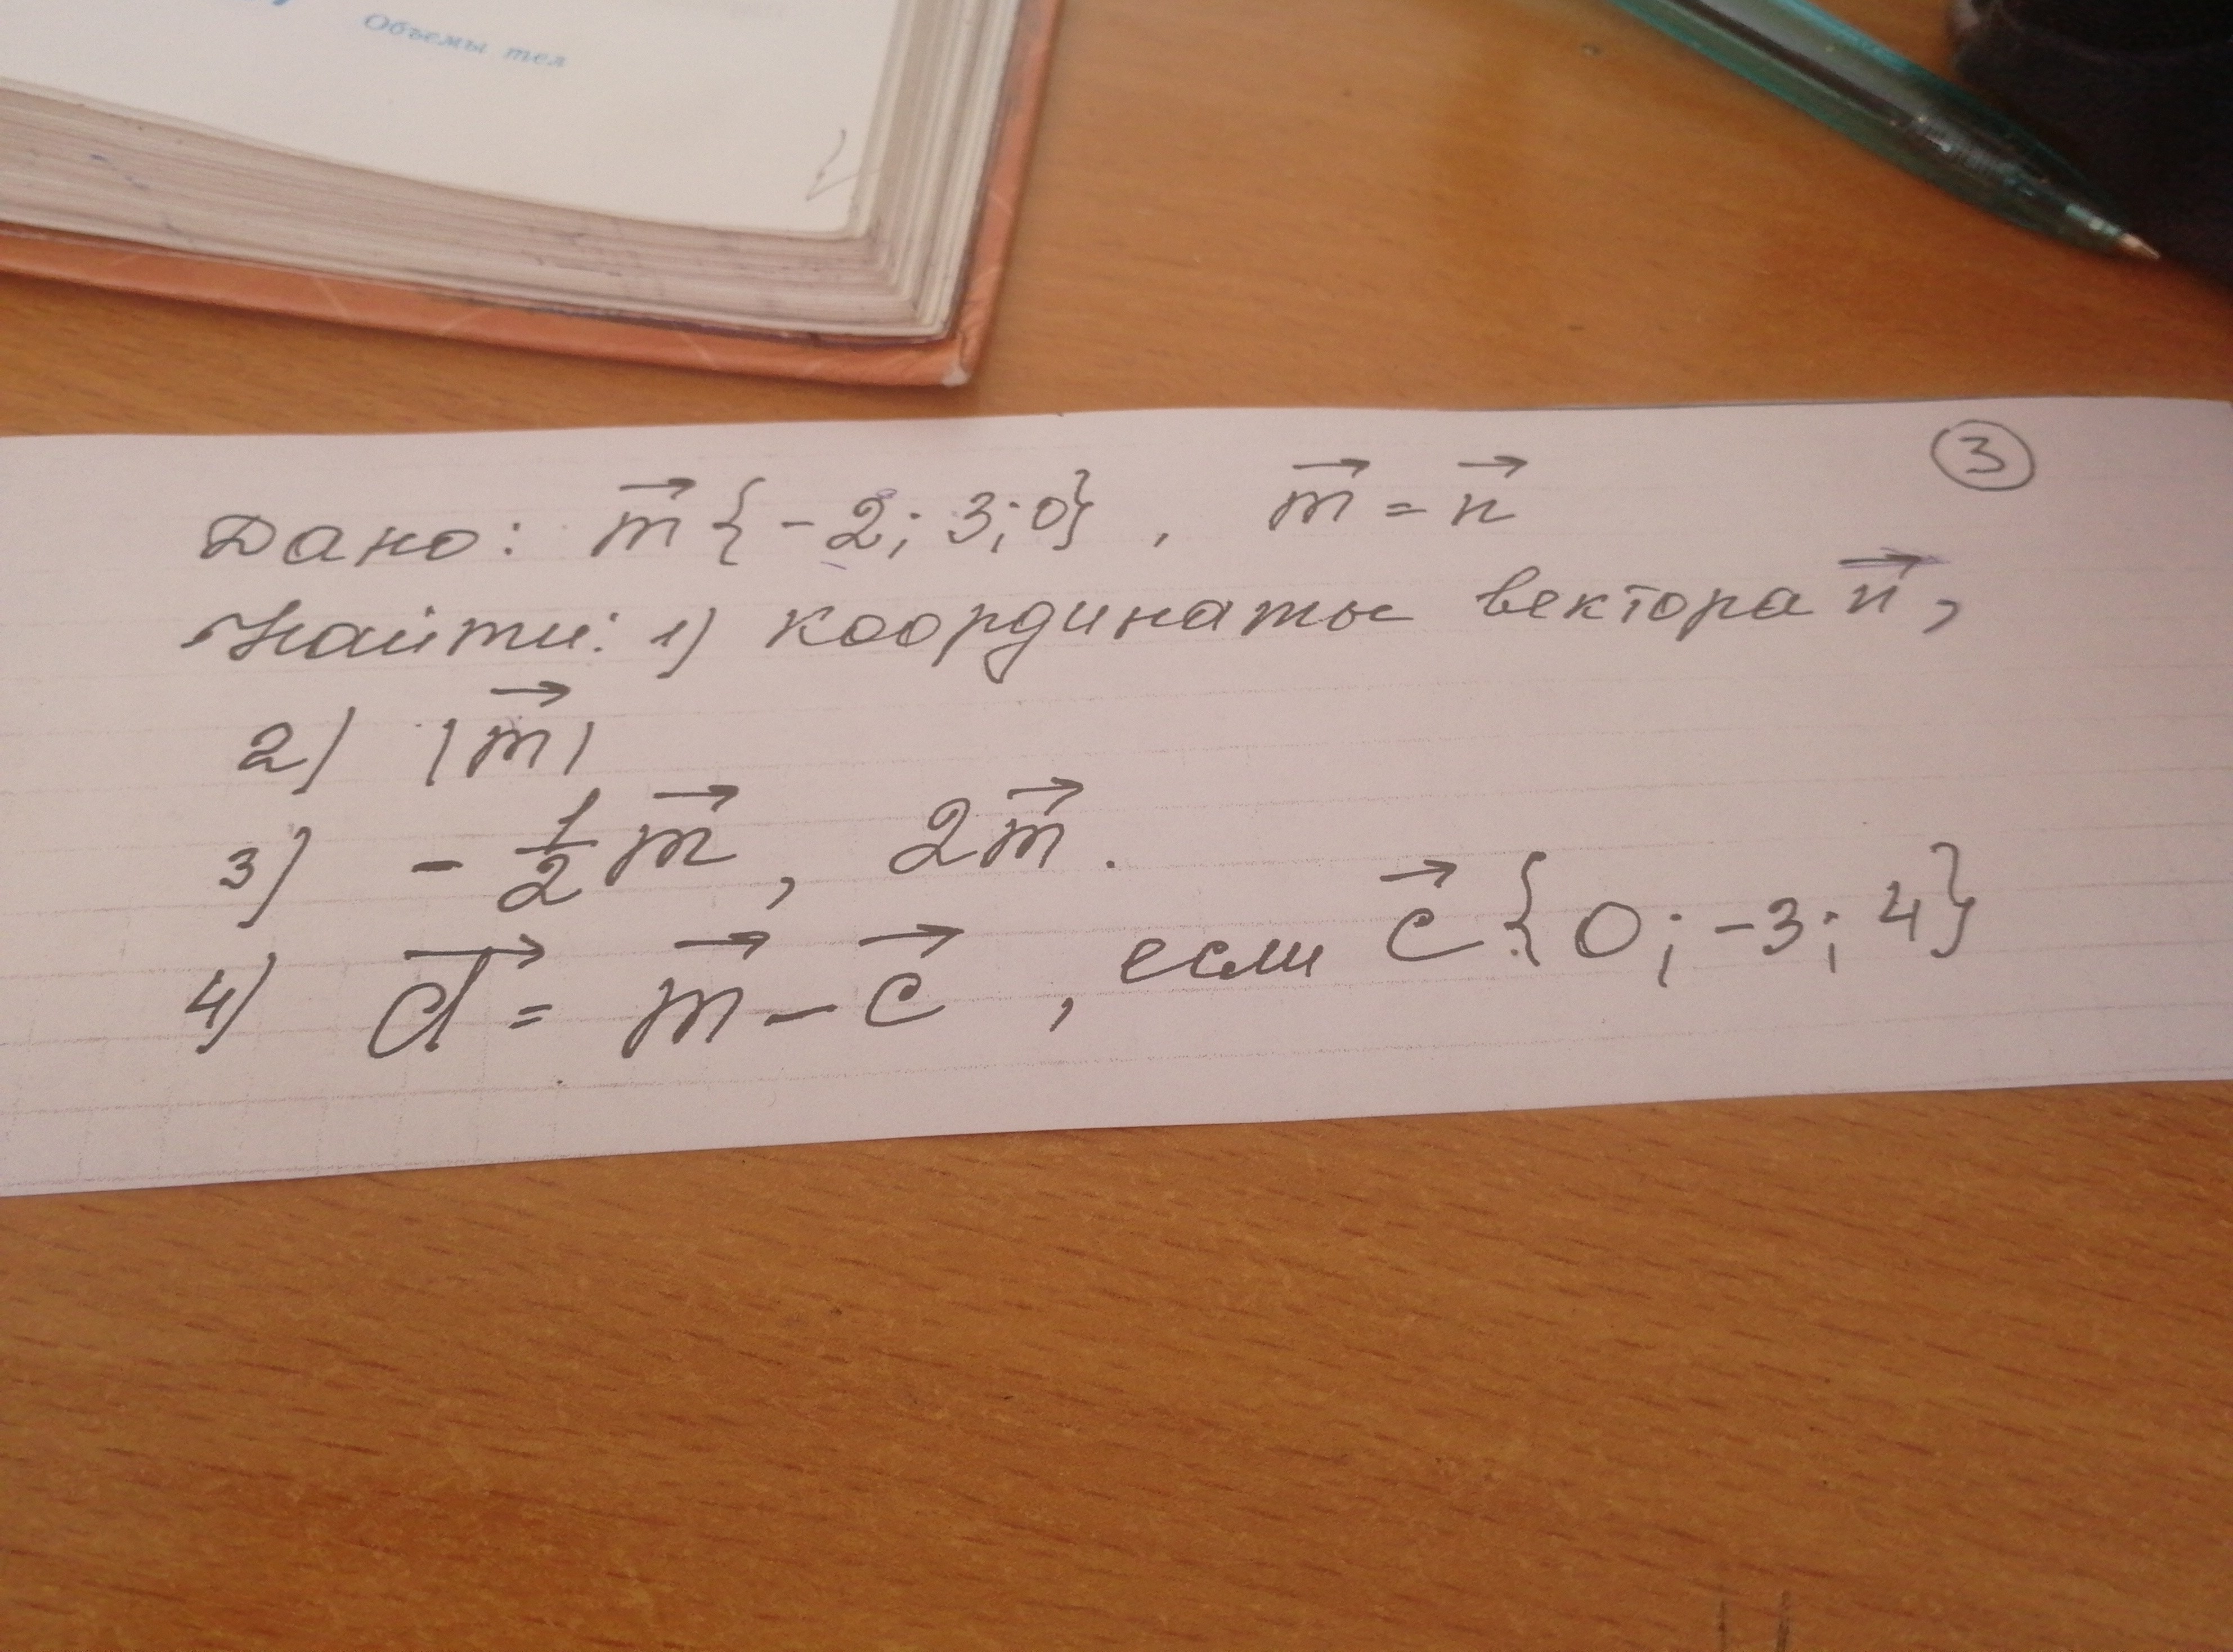 Объемы тел
③
Дано: m⃗ {-2; 3; 0}, m⃗ = n⃗
Найти: 1) координаты вектора n⃗,
2) |m⃗|
3) - 1/2 m⃗, 2m⃗.
4) d⃗ = m⃗ - c⃗, если c⃗ {0; -3; 4}